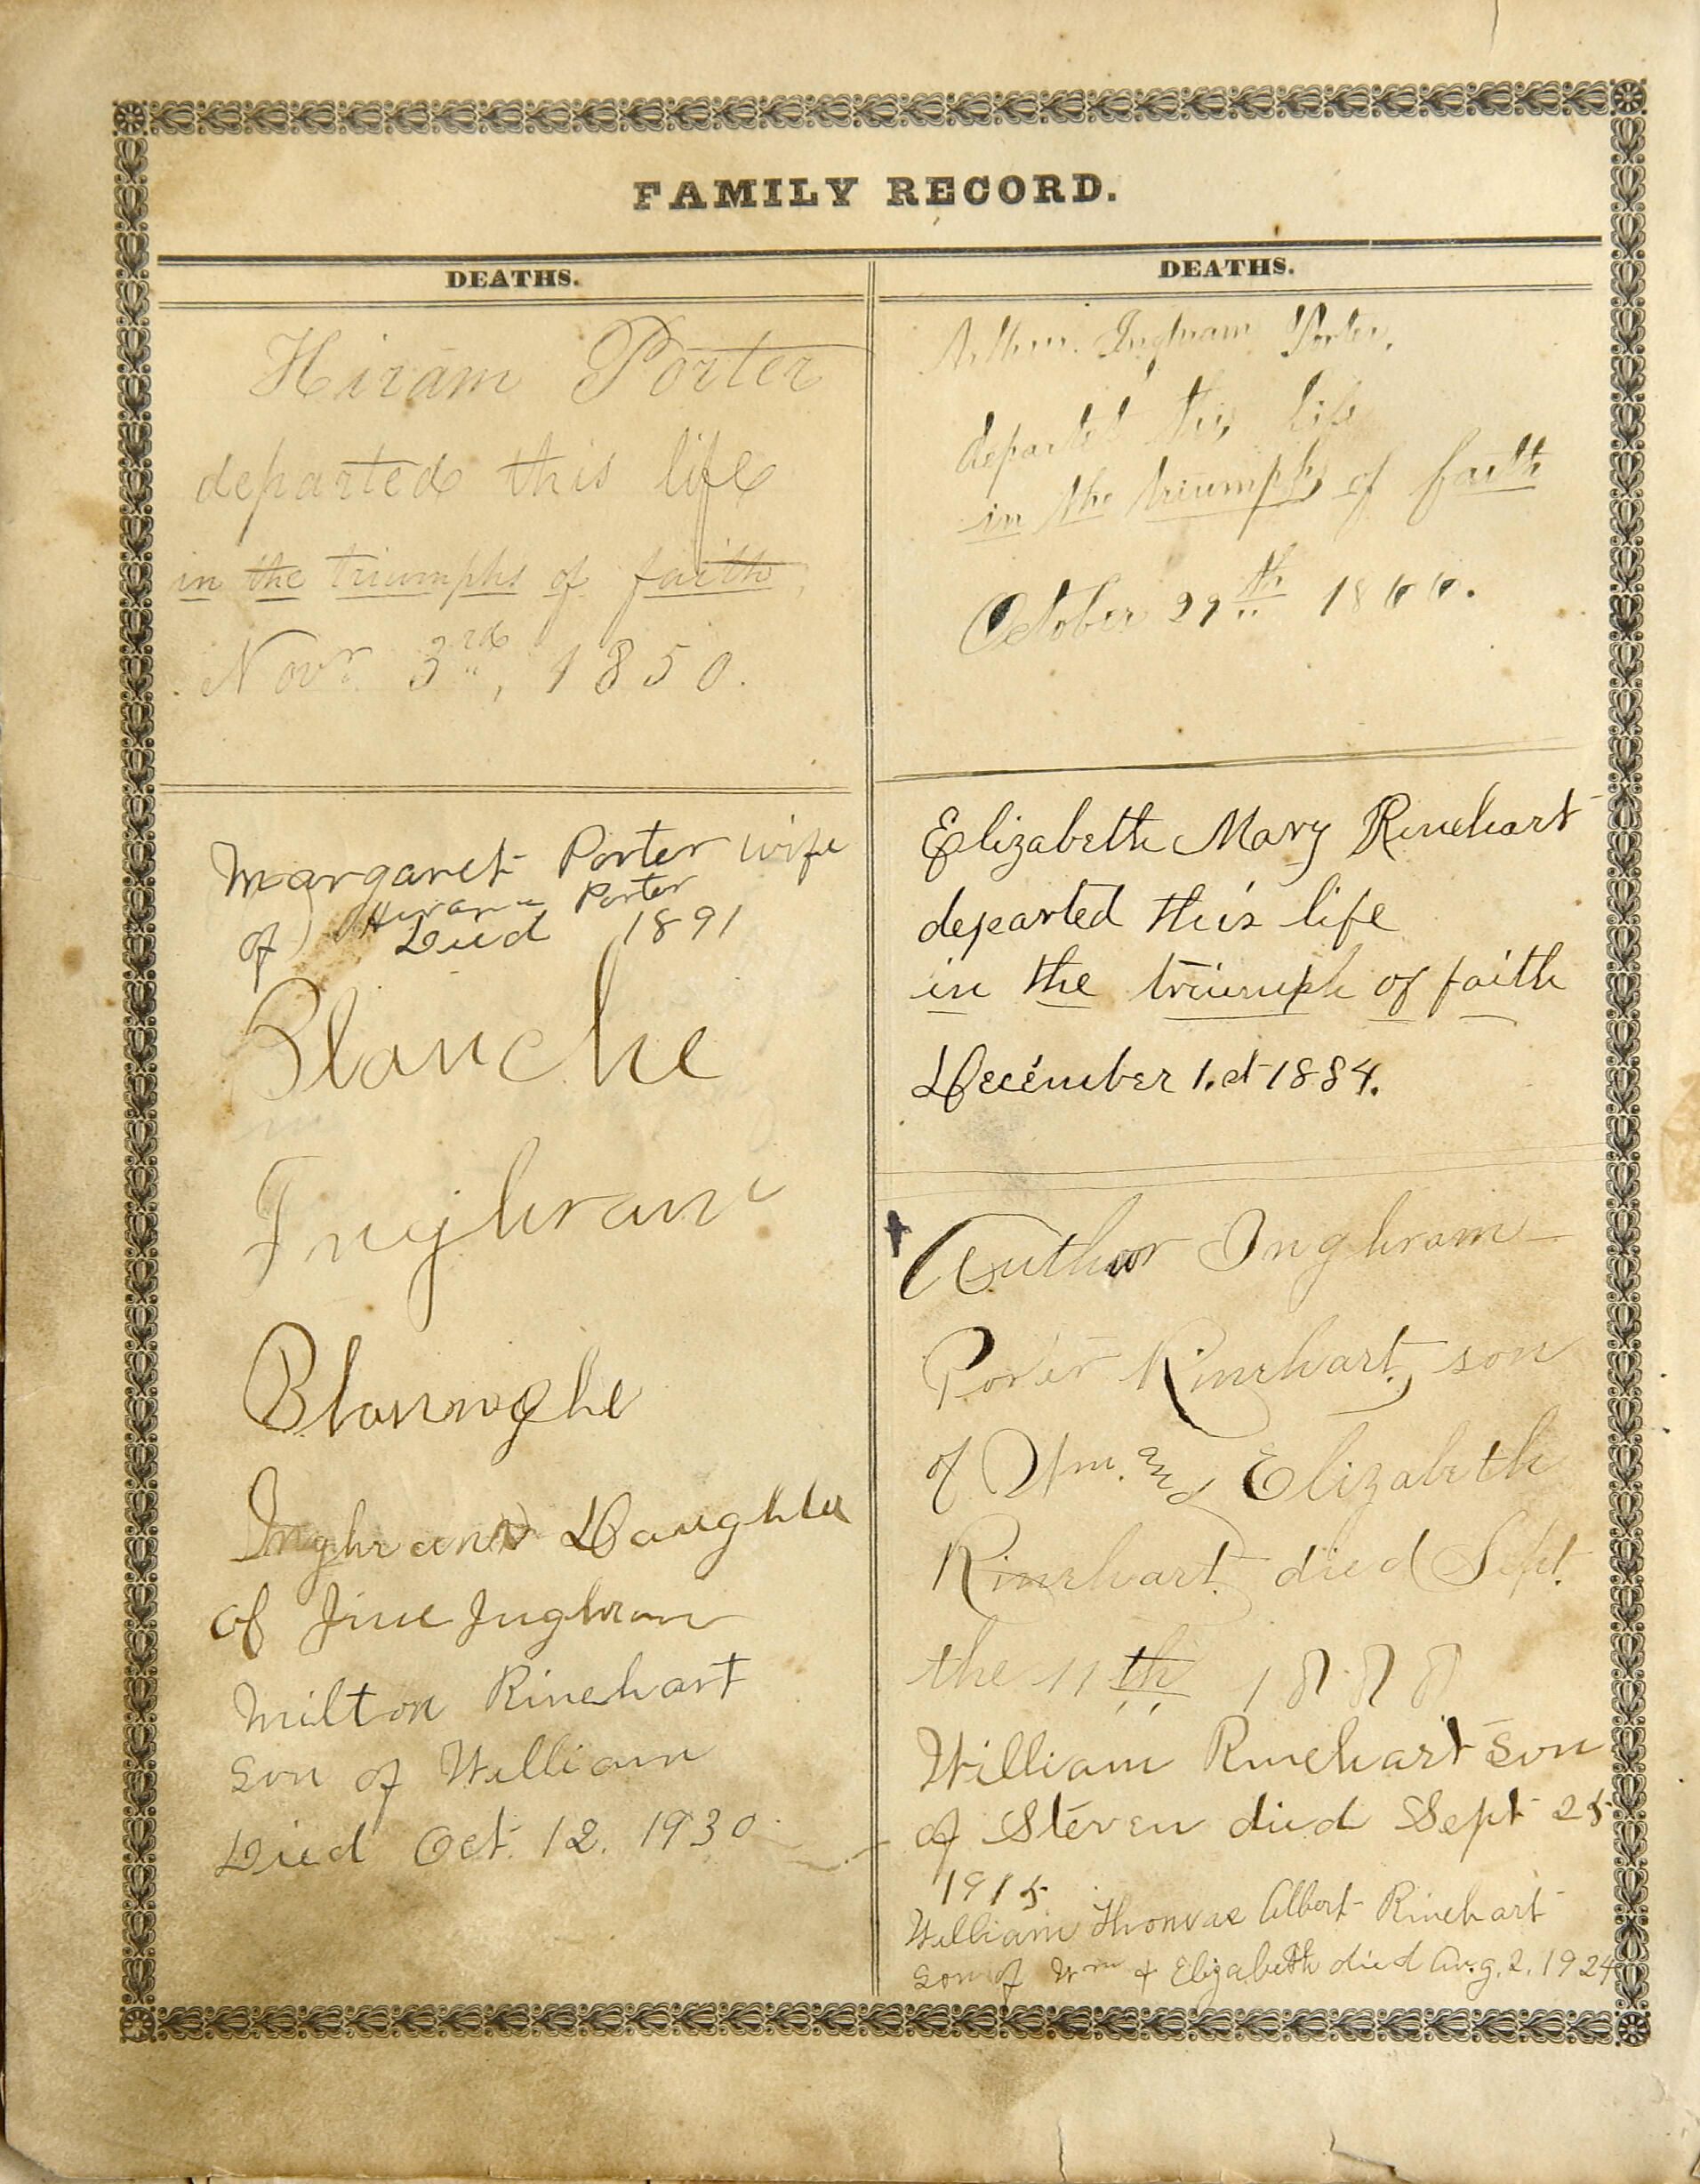 FAMILY RECORD.
DEATHS.
Hiram Porter
departed this life
in the triumphs of faith,
Novr. 3rd, 1850.
Margaret Porter wife
of Hiram Porter
Died 1891
Blanche
Inghram
Blannghe
Inghram Daughter
of Jine Inghram
Milton Rinehart
Son of William
Died Oct. 12. 1930
DEATHS.
Inghram Porter,
departed this life
in the triumphs of faith
October 29th 1866.
Elizabeth Mary Rinehart
departed this life
in the triumph of faith
December 1.st 1884.
Author Inghram
Porter Rinehart, son
of Wm. and Elizabeth
Rinehart. died Sept.
the 11th 1888
William Rinehart son
of Steven died Sept 25
1915
William Thomas Albert Rinehart
son of Wm & Elizabeth died Aug. 2. 1924